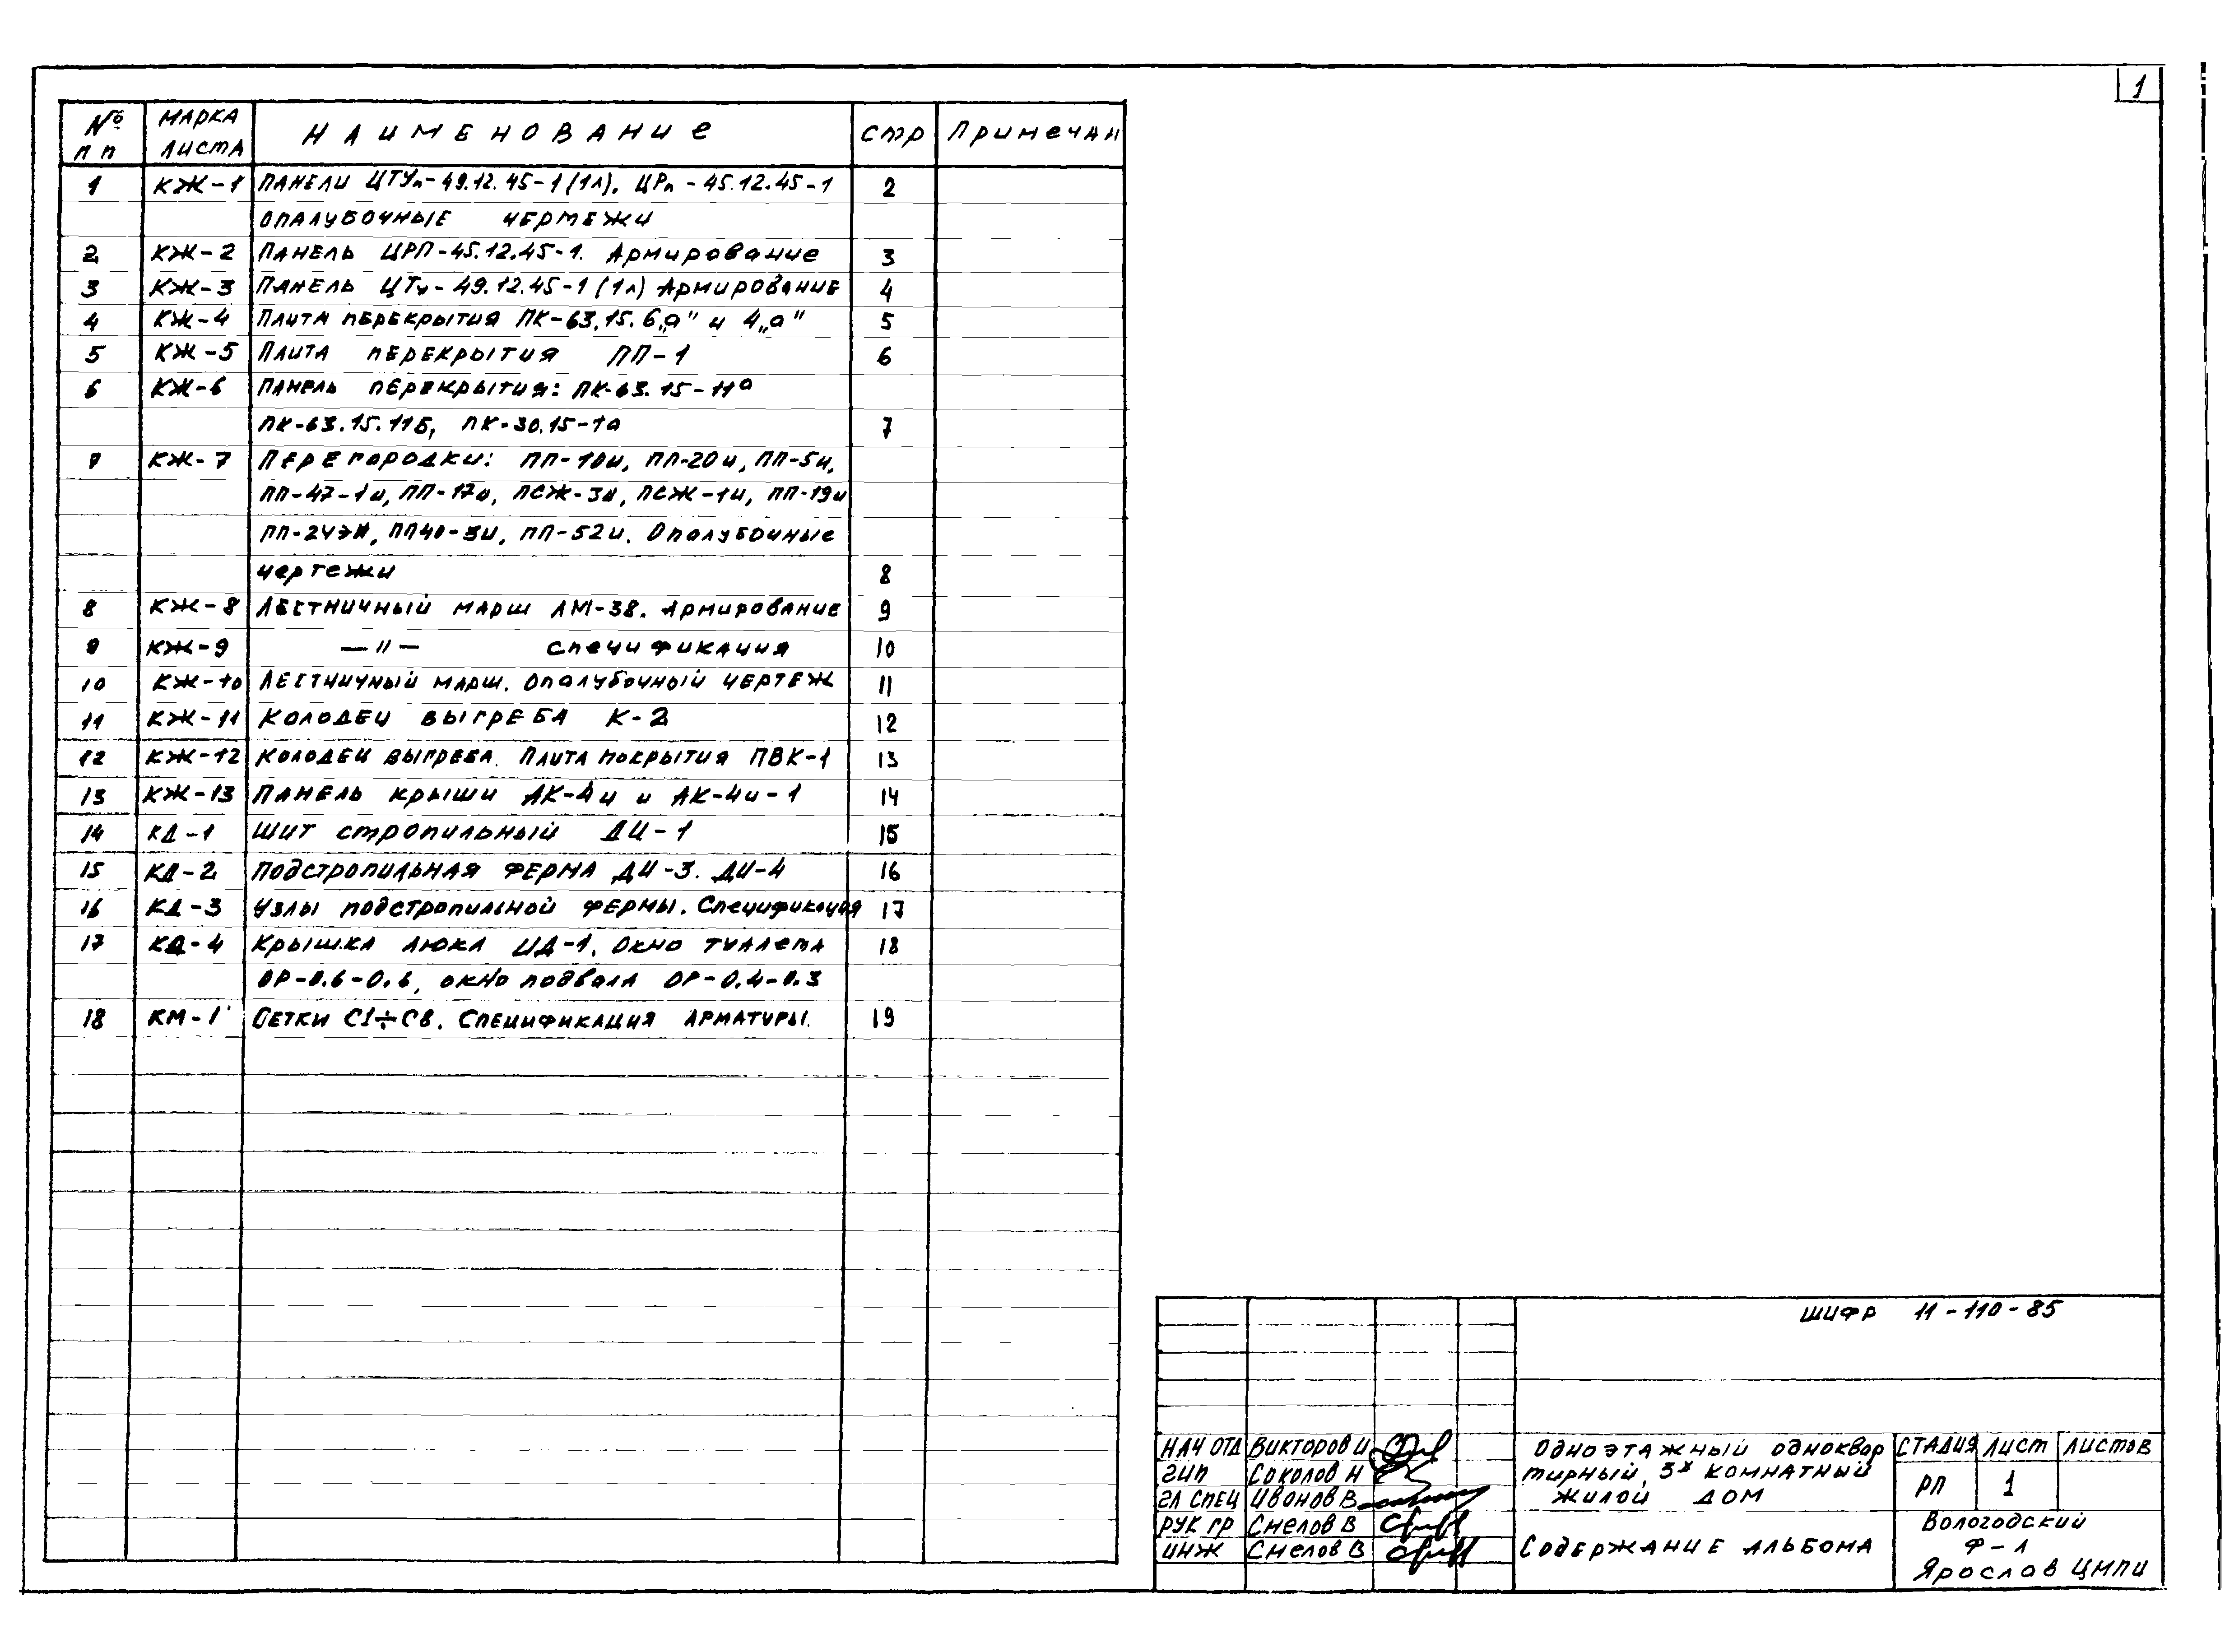 1
№ пп МАРКА ЛИСТА НАИМЕНОВАНИЕ Стр Примечан
1 КЖ-1 ПАНЕЛИ ЦТУп-49.12.45-1(1л). ЦРп-45.12.45-1 2
ОПАЛУБОЧНЫЕ ЧЕРТЕЖИ
2 КЖ-2 ПАНЕЛЬ ЦРП-45.12.45-1. Армирование 3
3 КЖ-3 ПАНЕЛЬ ЦТу-49.12.45-1(1л) Армирование 4
4 КЖ-4 Плита перекрытия ПК-63.15.6„а" и 4„а" 5
5 КЖ-5 Плита перекрытия ПП-1 6
6 КЖ-6 Панель перекрытия: ПК-63.15-11а
ПК-63.15.11Б, ПК-30.15-1а 7
7 КЖ-7 Перегородки: ПП-10и, ПП-20и, ПП-5и,
ПП-47-1и, ПП-17и, ПСЖ-3и, ПСЖ-1и, ПП-19и
ПП-24ЭИ, ПП40-3и, ПП-52и. Опалубочные
чертежи 8
8 КЖ-8 Лестничный марш ЛМ-38. Армирование 9
9 КЖ-9 —"— спецификация 10
10 КЖ-10 Лестничный марш. Опалубочный чертеж 11
11 КЖ-11 Колодец выгреба К-2 12
12 КЖ-12 Колодец выгреба. Плита покрытия ПВК-1 13
13 КЖ-13 Панель крыши АК-4и и АК-4и-1 14
14 КД-1 Шит стропильный ДИ-1 15
15 КД-2 Подстропильная ферма ДИ-3. ДИ-4 16
16 КД-3 Узлы подстропильной фермы. Спецификация 17
17 КД-4 Крышка люка ЦД-1. Окно туалета 18
ОР-0.6-0.6, окно подвала ОР-0.4-0.3
18 КМ-1 Сетки С1÷С8. Спецификация арматуры. 19
ШИФР 11-110-85
НАЧ ОТД Викторов И
ГИП Соколов Н
ГЛ СПЕЦ Иванов В
РУК ГР Смелов В
ИНЖ Смелов В
Одноэтажный одноквар
тирный, 3х комнатный
жилой дом
СТАДИЯ Лист Листов
РП 1
Содержание альбома
Вологодский
Ф-л
Ярослав ЦМПИ